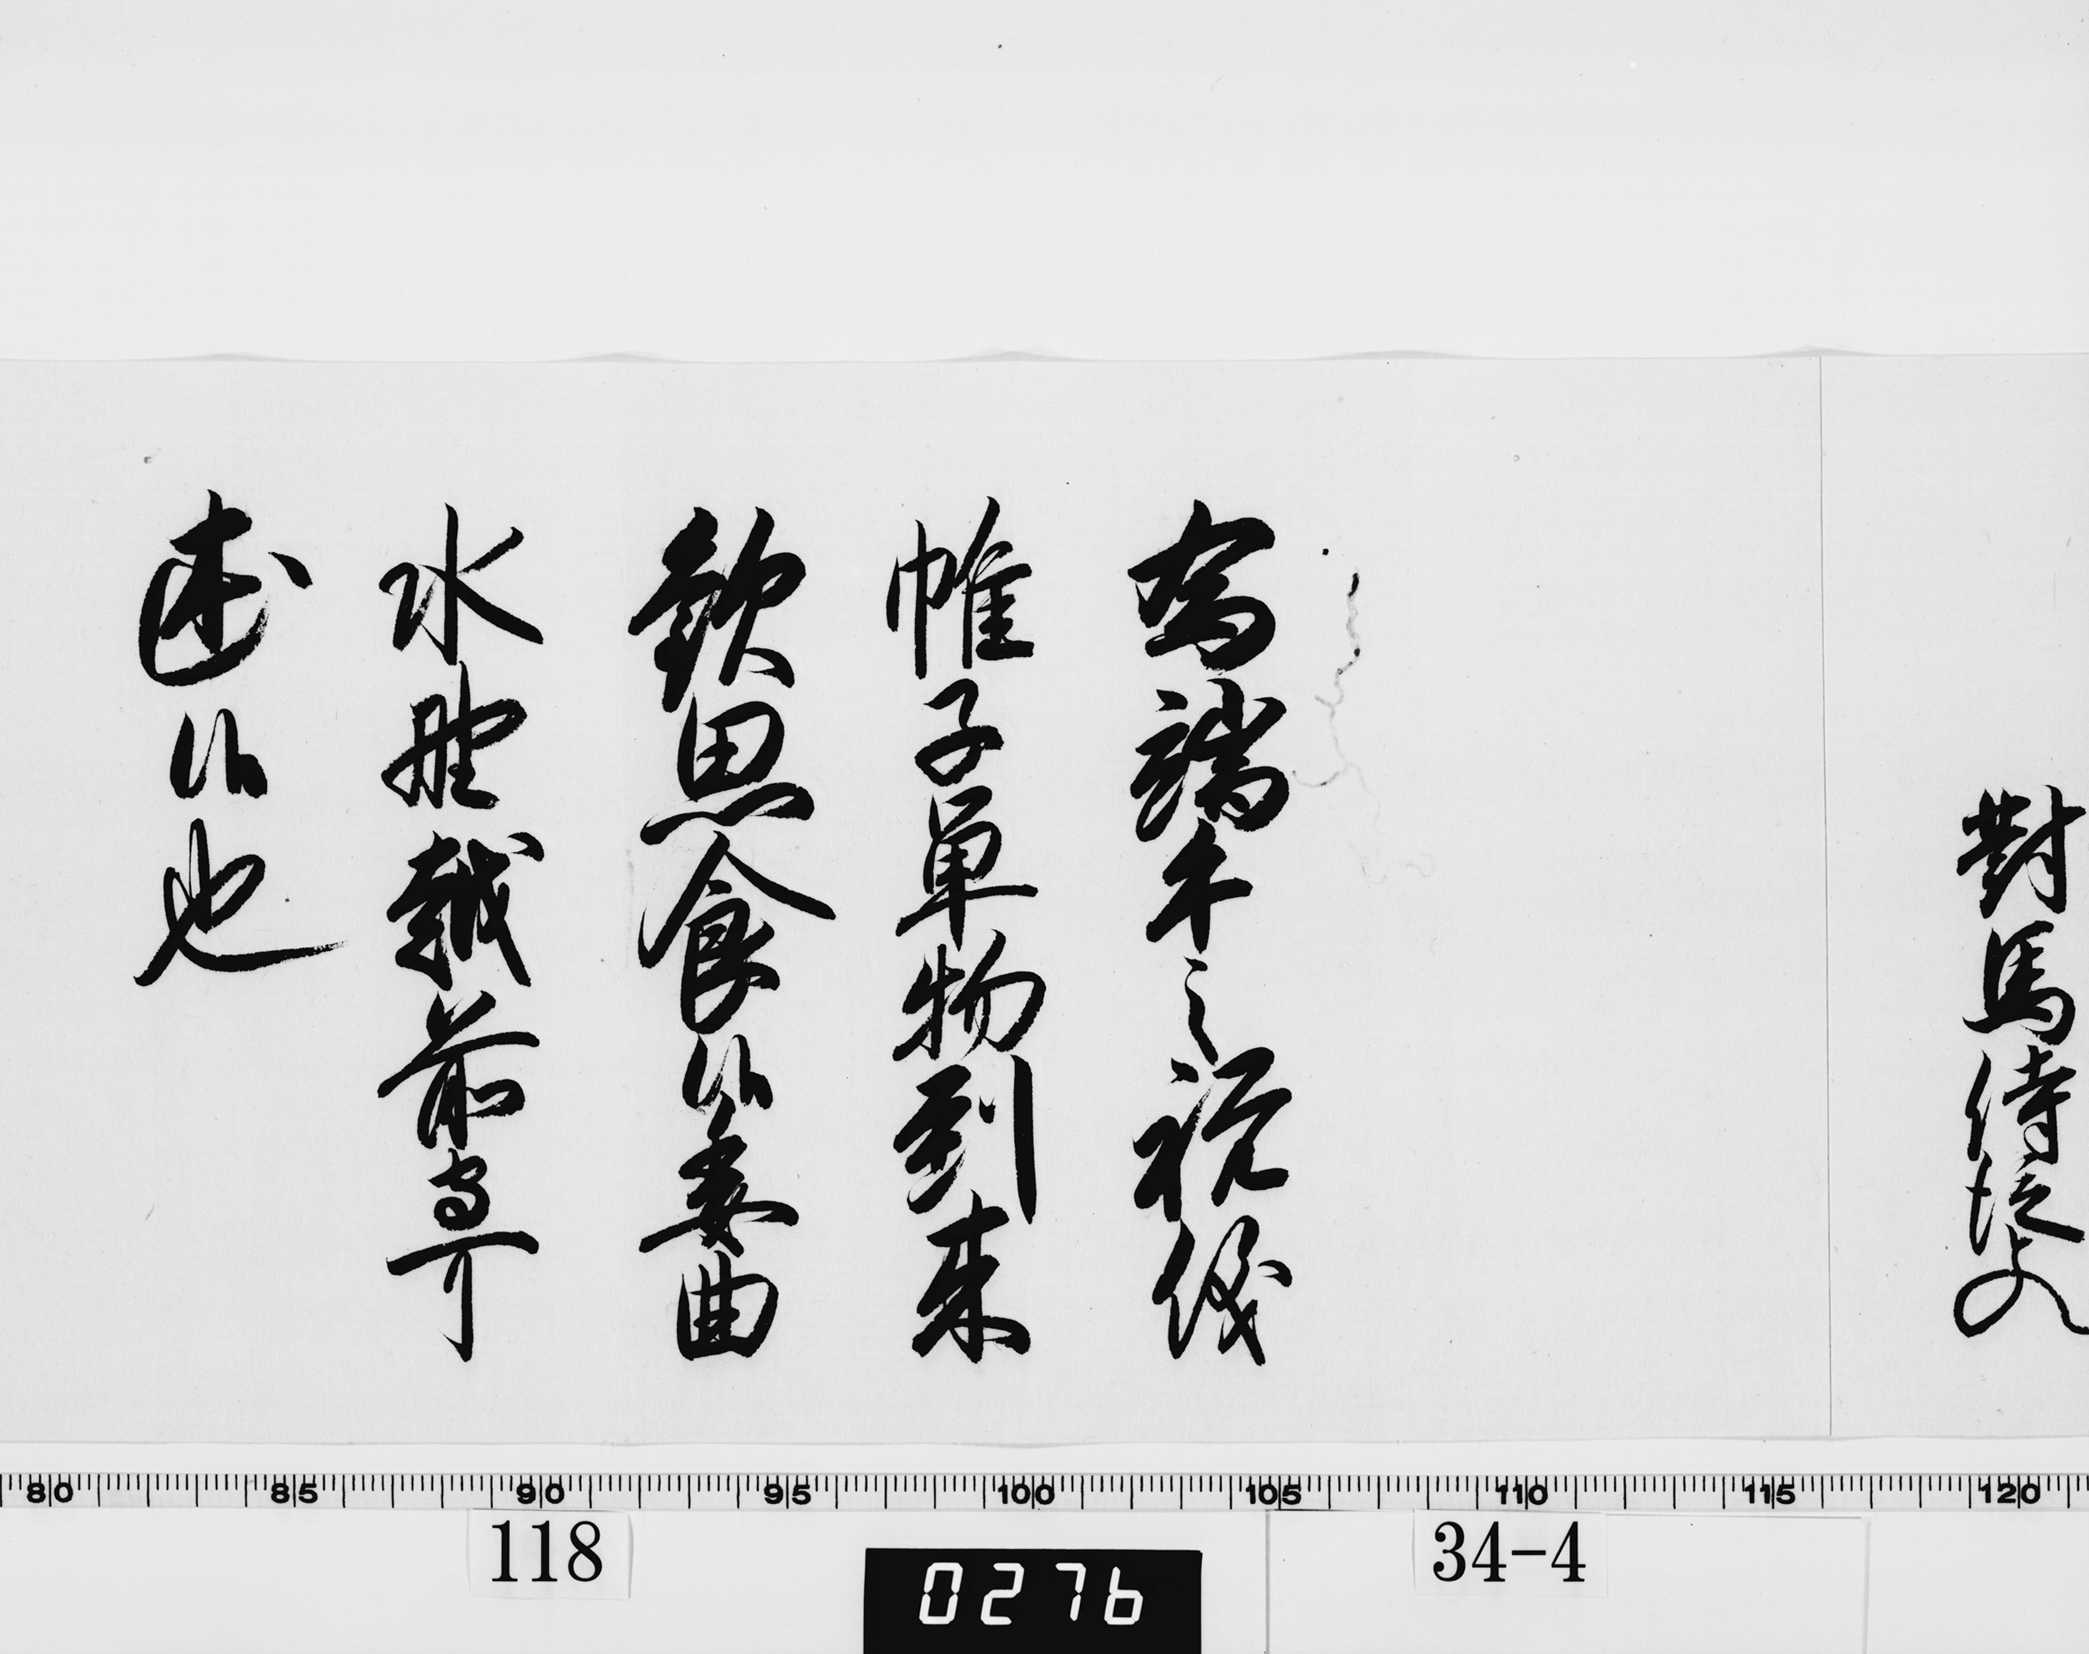 對馬侍従との
為端午之祝儀
帷子單物到来
歓思食候委曲
水野越前守可
述候也
80 85 90 95 100 105 110 115 120
118
0276
34-4